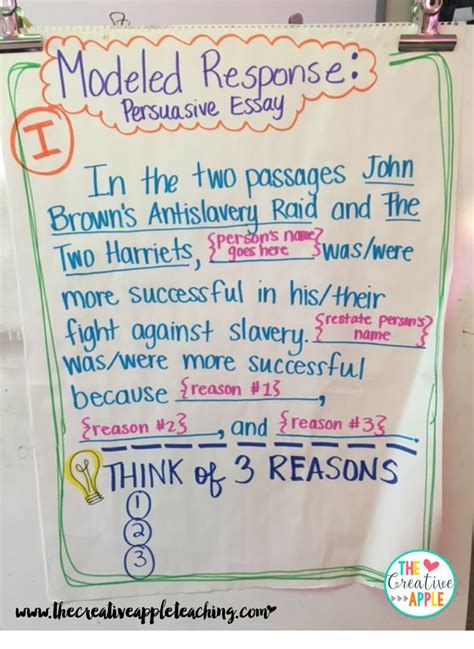 Modeled Response:
Persuasive Essay
I
In the two passages John
Brown's Antislavery Raid and The
Two Harriets, {person's name goes here} was/were
more successful in his/their
fight against slavery. {restate person's name}
was/were more successful
because {reason #1},
{reason #2}, and {reason #3}.
THINK of 3 REASONS
1
2
3
THE
Creative
APPLE
www.thecreativeappleteaching.com